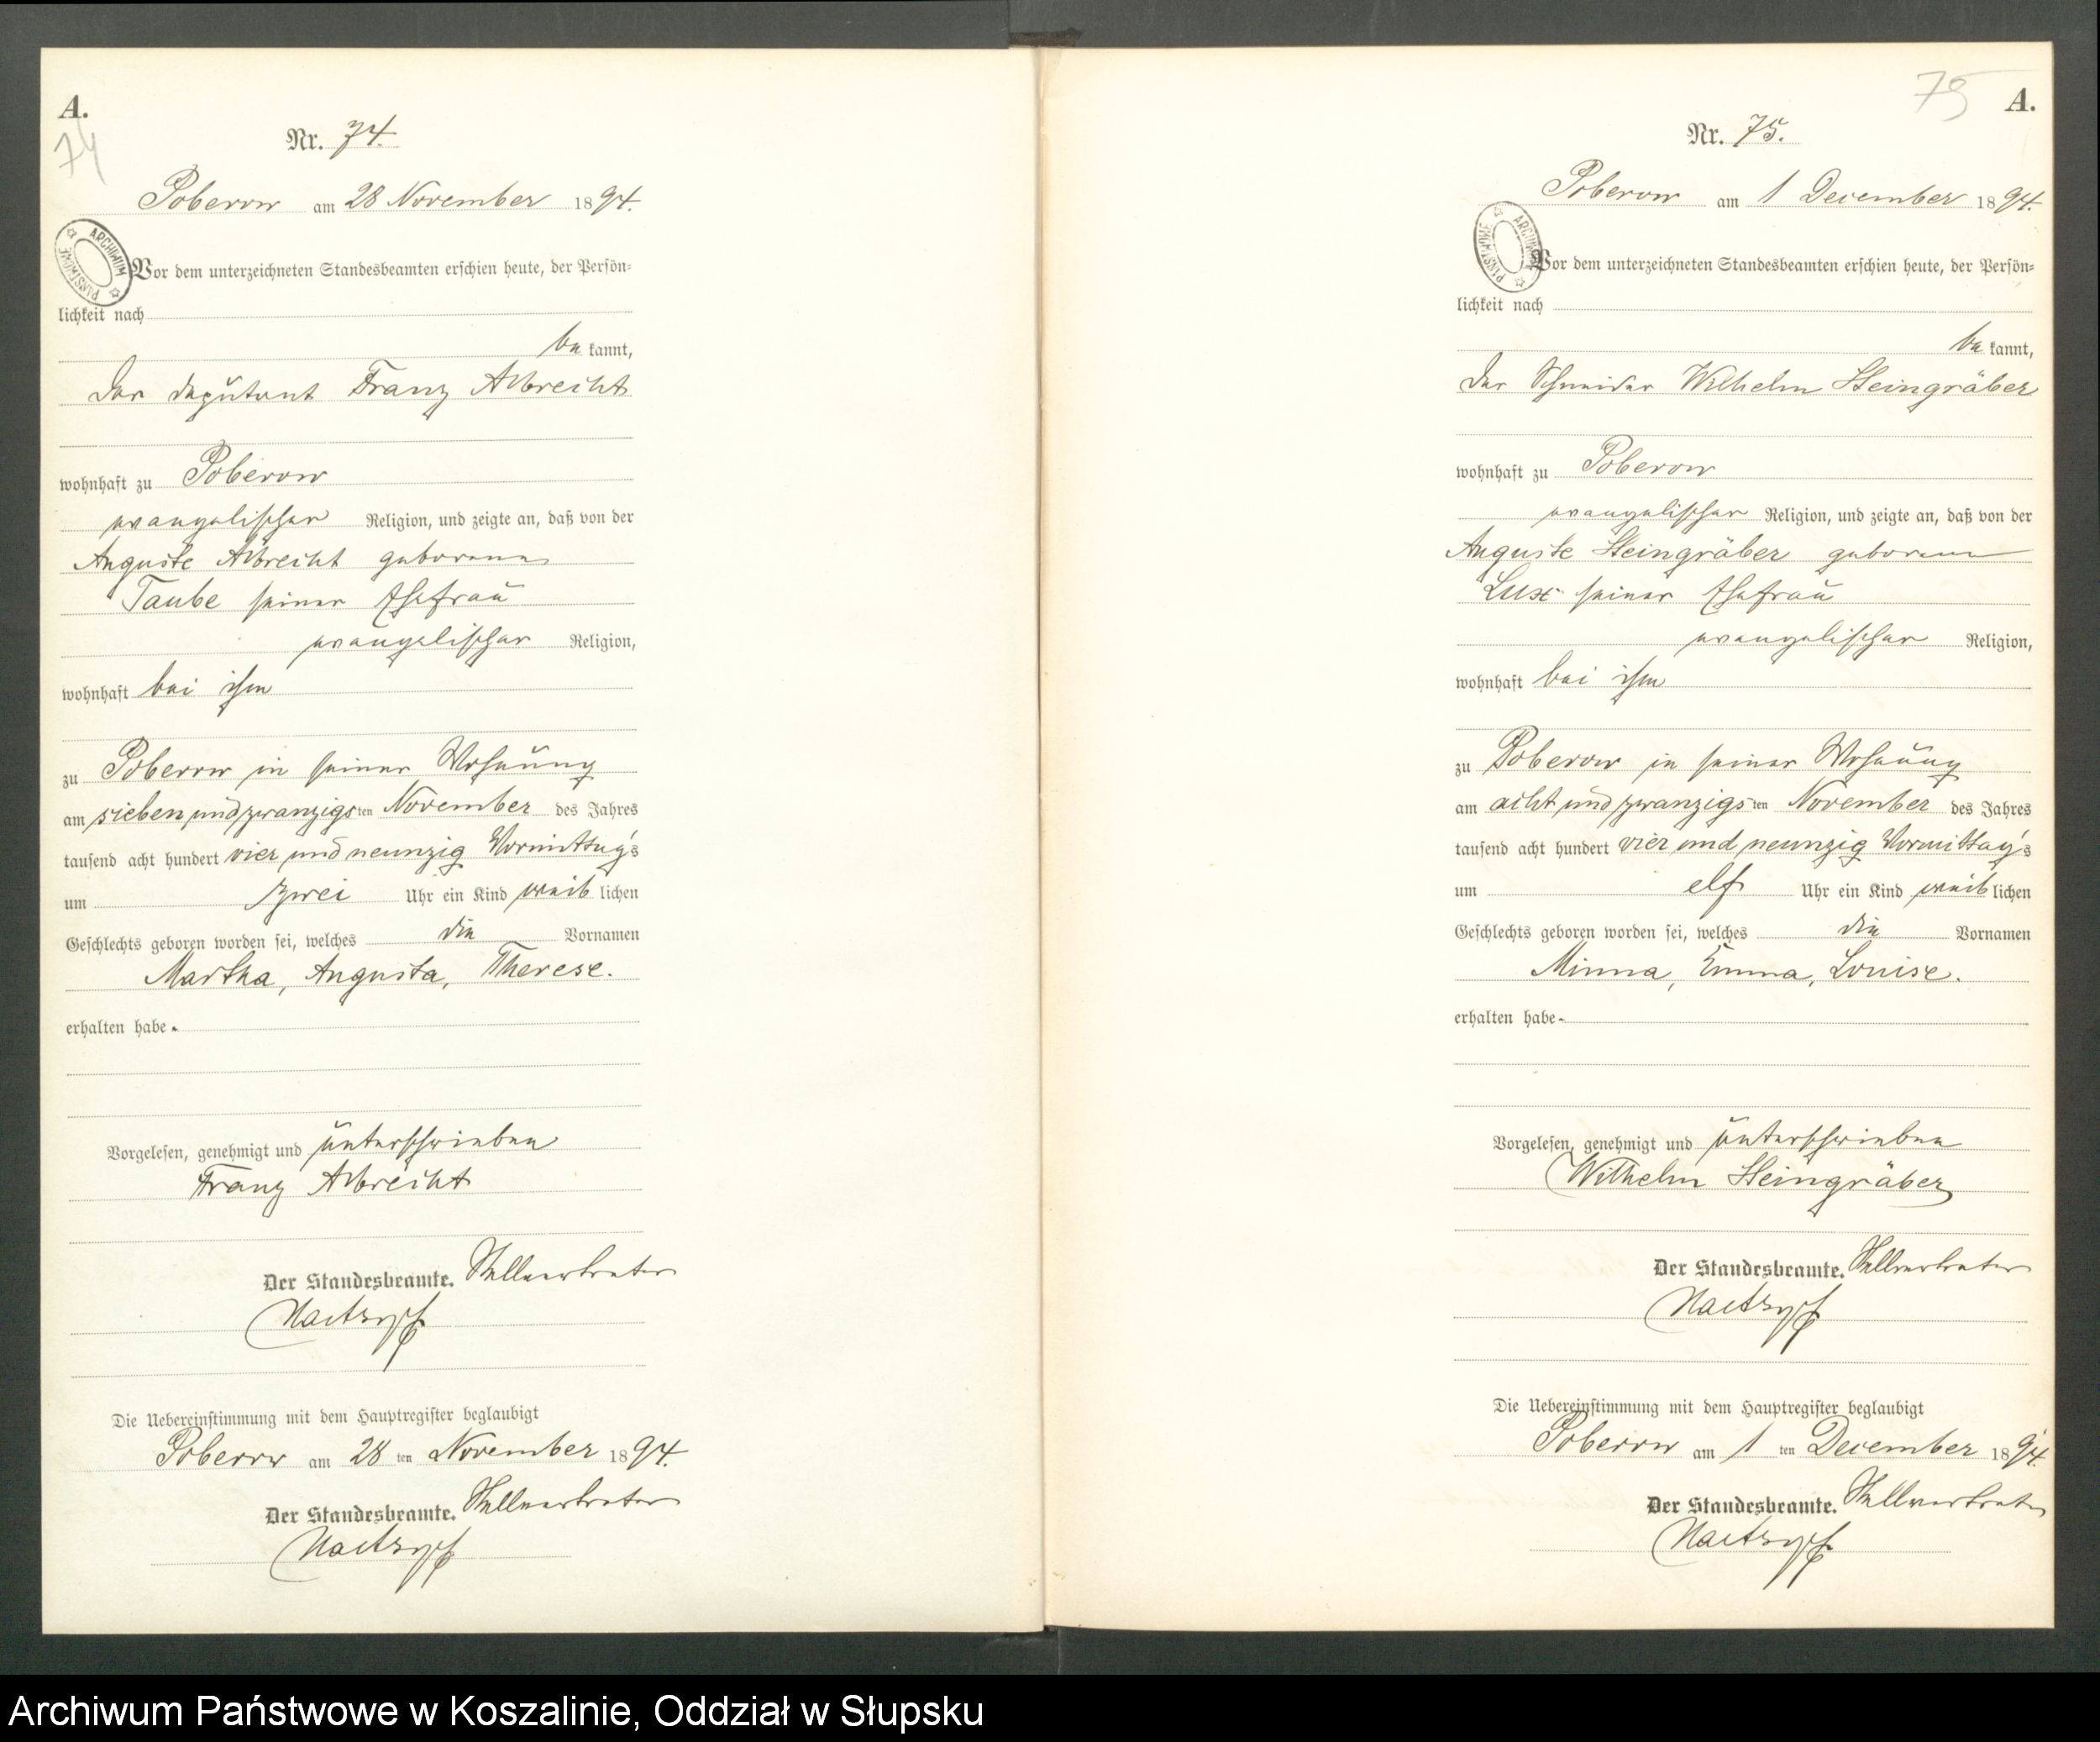 A.
74
Nr. 74.
Poberow am 28 November 1894.
ARCHIWUM PAŃSTWOWE
Vor dem unterzeichneten Standesbeamten erschien heute, der Persön=
lichkeit nach
be kannt,
der Deputant Franz Albrecht
wohnhaft zu Poberow
evangelischer Religion, und zeigte an, daß von der
Auguste Albrecht geborene
Taube seiner Ehefrau
evangelischer Religion,
wohnhaft bei ihm
zu Poberow in seiner Wohnung
am sieben und zwanzigsten November des Jahres
tausend acht hundert vier und neunzig Vormittags
um zwei Uhr ein Kind weiblichen
Geschlechts geboren worden sei, welches die Vornamen
Martha, Augusta, Therese.
erhalten habe.
Vorgelesen, genehmigt und unterschrieben
Franz Albrecht
Der Standesbeamte. Stellvertreter
Die Uebereinstimmung mit dem Hauptregister beglaubigt
Poberow am 28 ten November 1894.
Der Standesbeamte. Stellvertreter
75 A.
Nr. 75.
Poberow am 1 December 1894.
ARCHIWUM PAŃSTWOWE
Vor dem unterzeichneten Standesbeamten erschien heute, der Persön=
lichkeit nach
be kannt,
der Schneider Wilhelm Steingräber
wohnhaft zu Poberow
evangelischer Religion, und zeigte an, daß von der
Auguste Steingräber geborene
Lux seiner Ehefrau
evangelischer Religion,
wohnhaft bei ihm
zu Poberow in seiner Wohnung
am acht und zwanzigsten November des Jahres
tausend acht hundert vier und neunzig Vormittags
um elf Uhr ein Kind weiblichen
Geschlechts geboren worden sei, welches die Vornamen
Minna, Emma, Louise.
erhalten habe.
Vorgelesen, genehmigt und unterschrieben
Wilhelm Steingräber
Der Standesbeamte. Stellvertreter
Die Uebereinstimmung mit dem Hauptregister beglaubigt
Poberow am 1 ten December 1894.
Der Standesbeamte. Stellvertreter
Archiwum Państwowe w Koszalinie, Oddział w Słupsku